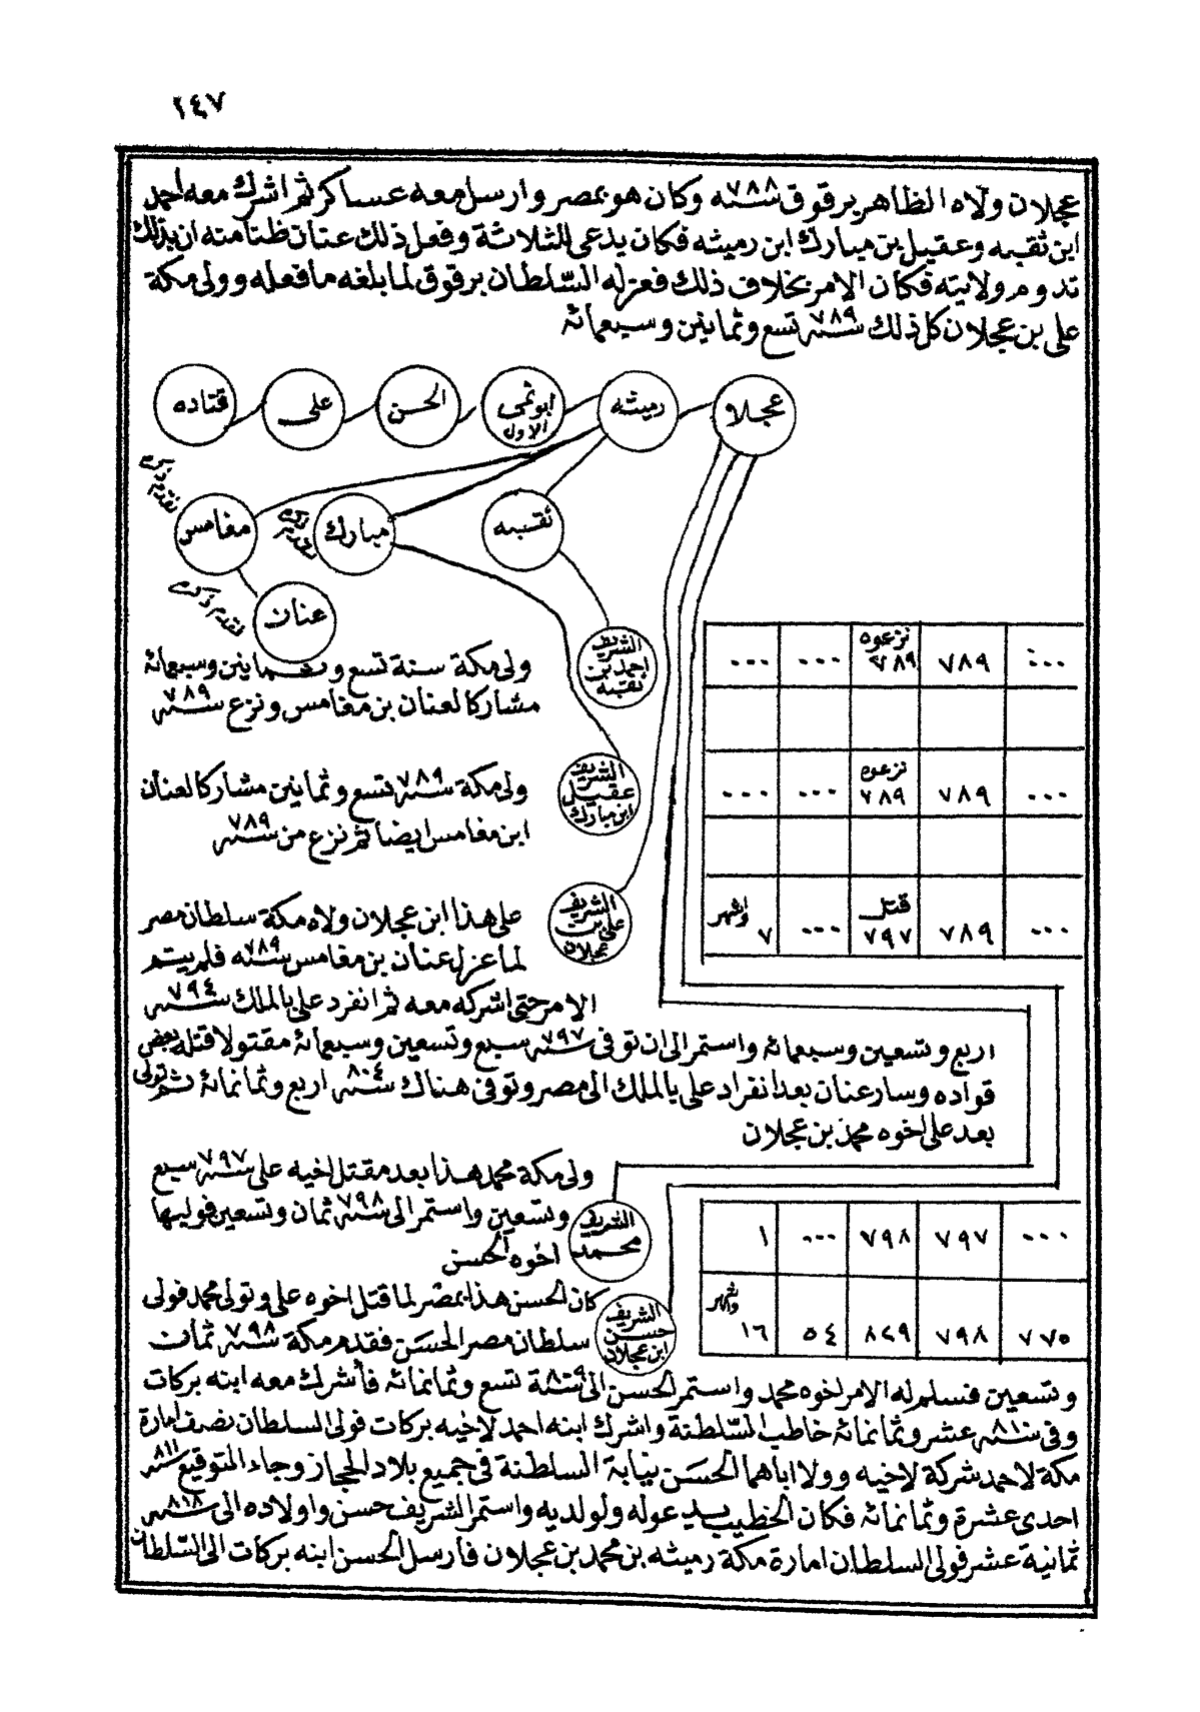 ٢٤٧
عجلان ولاه الظاهر برقوق سنة ٧٨٨ وكان هو بمصر وارسل معه عساكر ثم اشرك معه احمد
ابن ثقبه وعقيل بن مبارك ابن رميثه فكان يدعى للثلاثة وفعل ذلك عنان ظنا منه ان بذلك
تدوم ولايته فكان الامر بخلاف ذلك فعزله السلطان برقوق لما بلغه ما فعله وولى مكة
على بن عجلان كل ذلك سنة ٧٨٩ تسع وثمانين وسبعمائة
عجلا
رميثه
ابو نمى الاول
الحسن
على
قتاده
ثقبه
مبارك
تقدم ذكره
مغامس
تقدم ذكره
عنان
تقدم ذكره
٠٠٠ ٧٨٩ نزعوه ٧٨٩ ٠٠٠ ٠٠٠
الشريف احمد بن ثقبه
ولى مكة سنة تسع وثمانين وسبعمائة
مشاركا لعنان بن مغامس ونزع سنة ٧٨٩
٠٠٠ ٧٨٩ نزعوه ٧٨٩ ٠٠٠ ٠٠٠
الشريف عقيل ابن مبارك
ولى مكة سنة ٧٨٩ تسع وثمانين مشاركا لعنان
ابن مغامس ايضا ثم نزع من سنة ٧٨٩
٠٠٠ ٧٨٩ قتل ٧٩٧ ٠٠٠ ٧ واشهر
الشريف على بن عجلان
على هذا ابن عجلان ولاه مكة سلطان مصر
لما عزل عنان بن مغامس سنة ٧٨٩ فلم يتم
الامر حتى اشركه معه ثم انفرد على بالملك سنة ٧٩٤
اربع وتسعين وسبعمائة واستمر الى ان توفى سنة ٧٩٧ سبع وتسعين وسبعمائة مقتولا قتله بعض
قواده وسار عنان بعد انفراد على بالملك الى مصر وتوفى هناك سنة ٨٠٤ اربع وثمانمائة ثم تولى
بعد على اخوه محمد بن عجلان
٠٠٠ ٧٩٧ ٧٩٨ ٠٠٠ ١
الشريف محمد
ولى مكة محمد هذا بعد مقتل اخيه على سنة ٧٩٧ سبع
وتسعين واستمر الى سنة ٧٩٨ ثمان وتسعين فوليها
اخوه الحسن
٧٧٥ ٧٩٨ ٨٢٩ ٥٤ ١٦ واشهر
الشريف حسن ابن عجلان
كان الحسن هذا بمصر لما قتل اخوه على وتولى محمد فولى
سلطان مصر الحسن فقدم مكة سنة ٧٩٨ ثمان
وتسعين فسلم له الامر اخوه محمد واستمر الحسن الى سنة ٨٠٩ تسع وثمانمائة فأشرك معه ابنه بركات
وفى سنة عشر وثمانمائة خاطب السلطنة واشرك ابنه احمد لاخيه بركات فولى السلطان نصف امارة
مكة لاحمد شركة لاخيه وولا اباهما الحسن نيابة السلطنة فى جميع بلاد الحجاز وجاء التوقيع سنة ٨١١
احدى عشرة وثمانمائة فكان الخطيب يدعو له ولولديه واستمر الشريف حسن واولاده الى سنة ٨١٨
ثمانية عشر فولى السلطان امارة مكة رميثه بن محمد بن عجلان فأرسل الحسن ابنه بركات الى السلطان